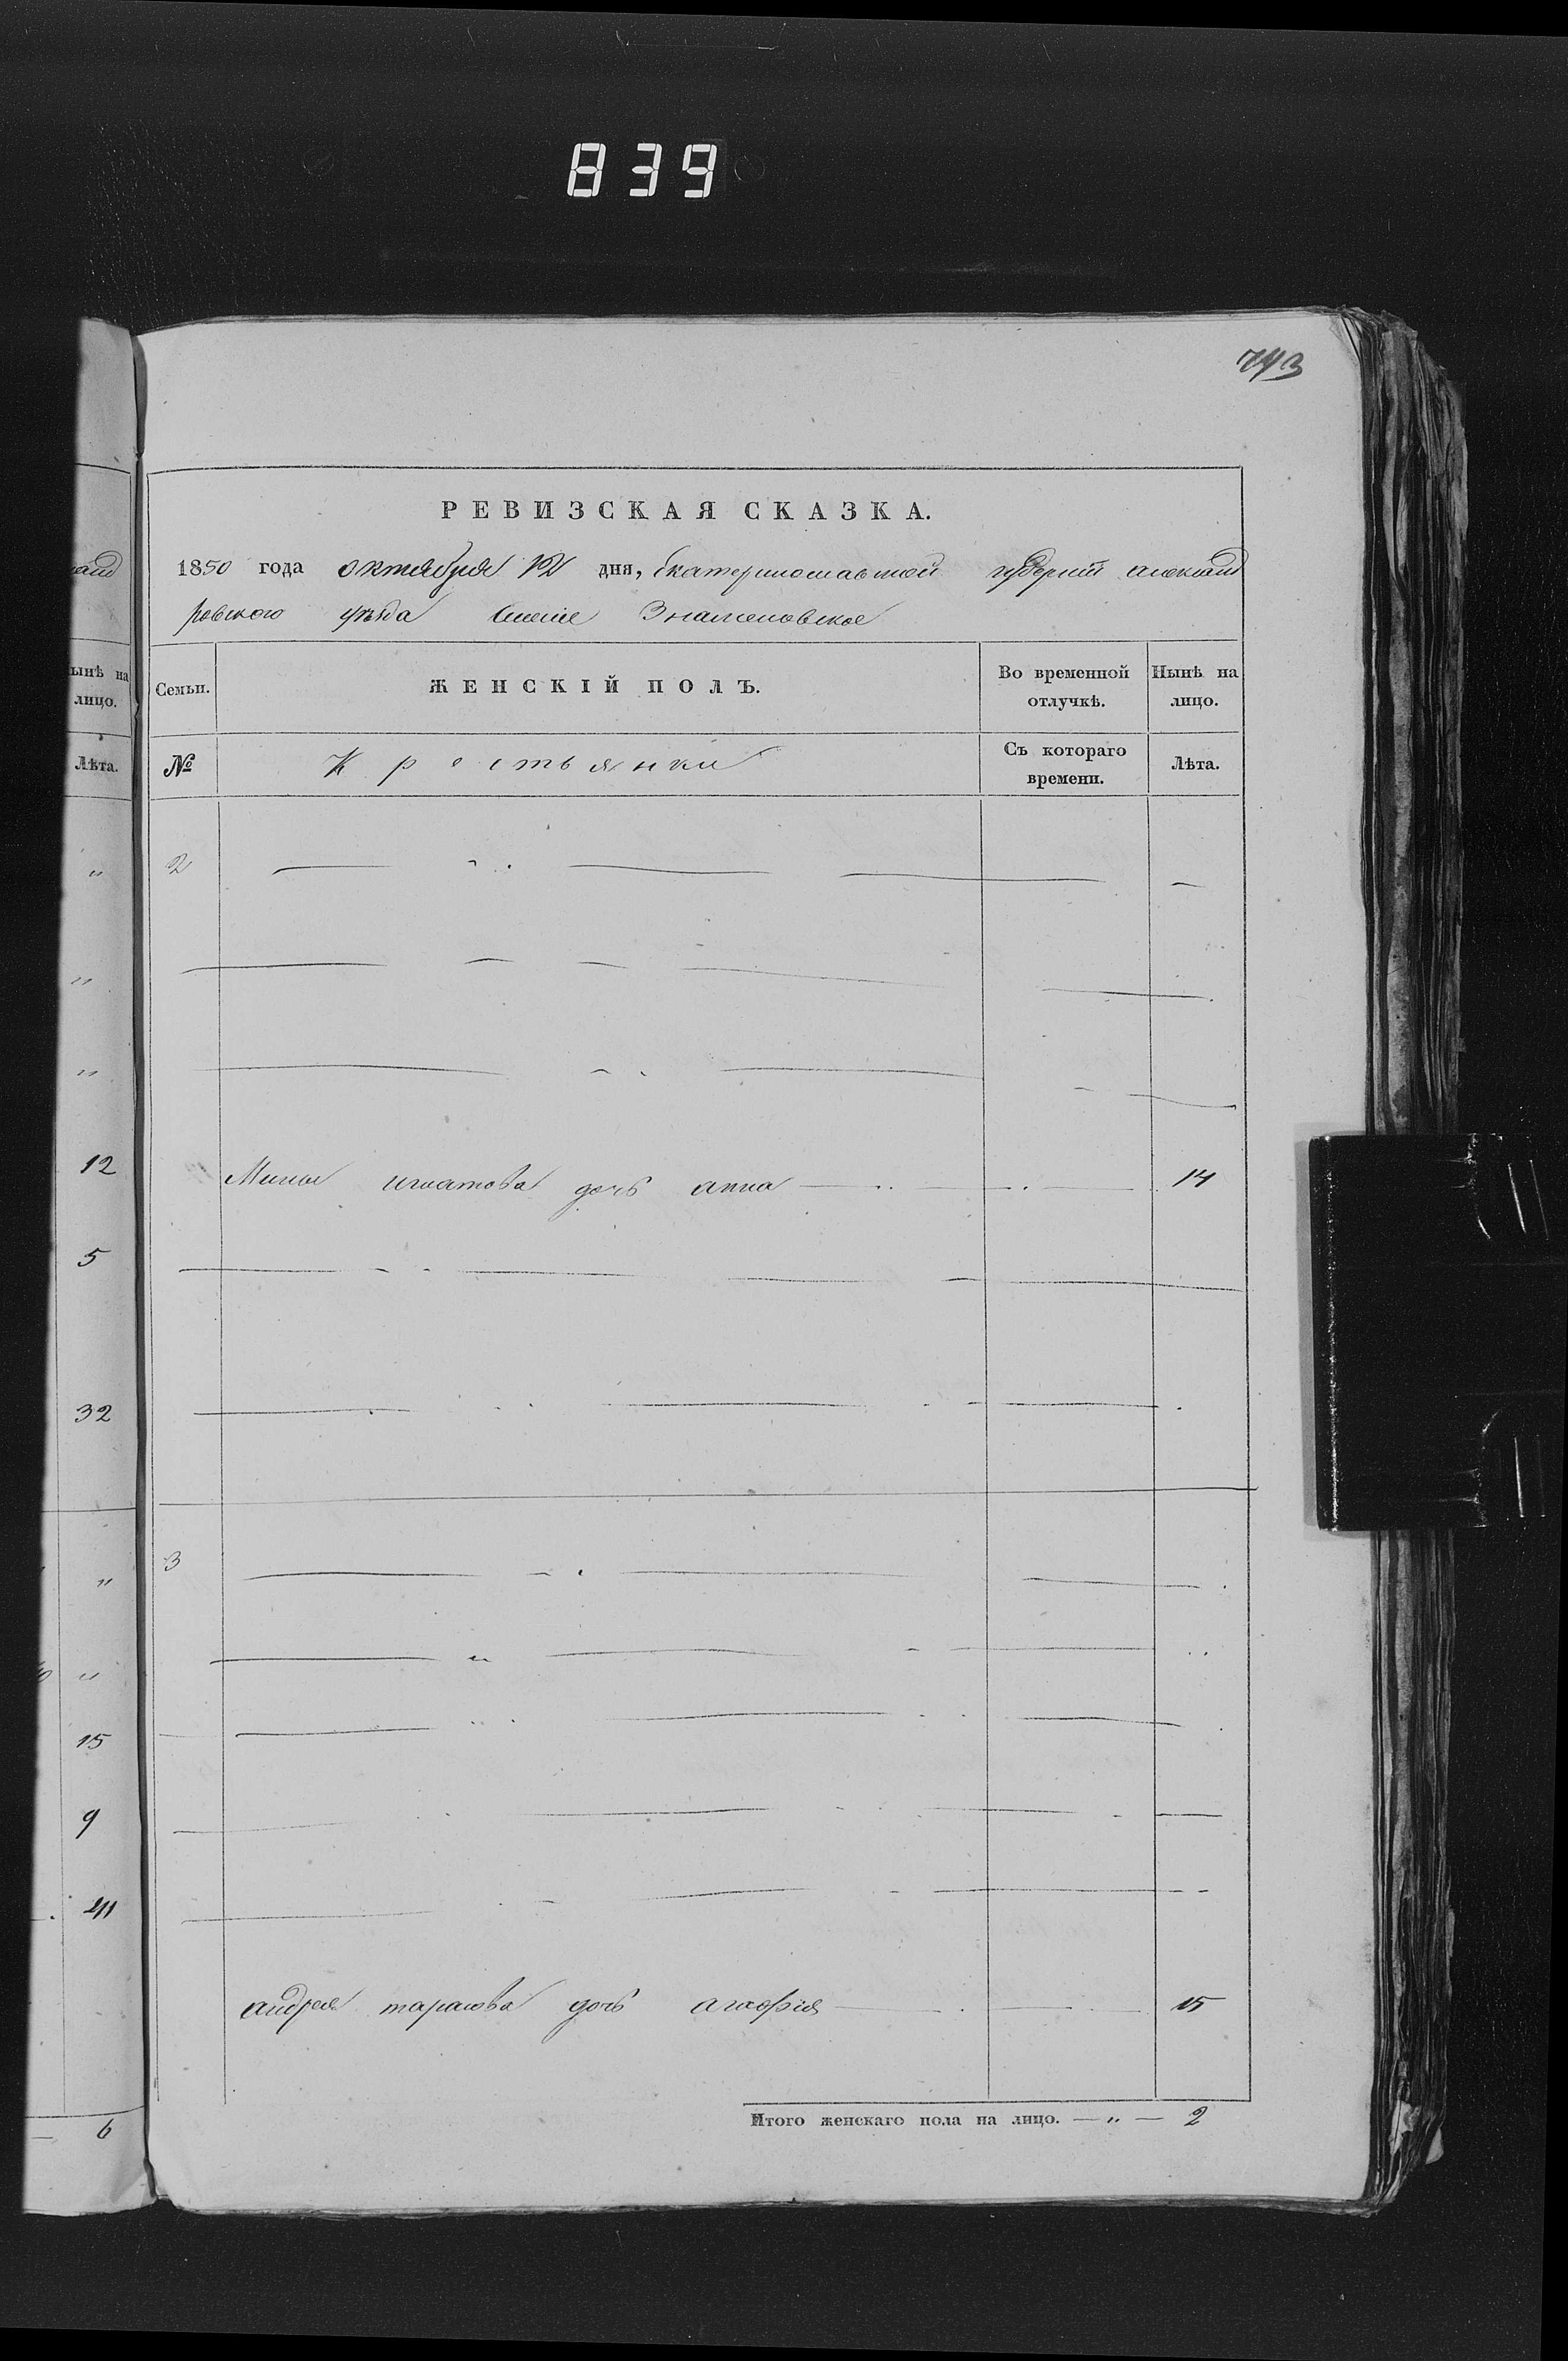 839
743
РЕВИЗСКАЯ СКАЗКА.
1850 года октября 12 дня, Екатеринославской губернии александ
ровского уѣзда Знаменовское
Семьи. ЖЕНСКІЙ ПОЛЪ. Во временной отлучкѣ. Нынѣ на лицо.
№ Крестьянки Съ котораго времени. Лѣта.
2
Мины игнатова дочь анна 14
3
андрея тарасова дочь агафія 15
Итого женскаго пола на лицо. — „ — 2
ынѣ на
лицо.
Лѣта.
„
„
„
12
5
32
„
„
15
9
41
6